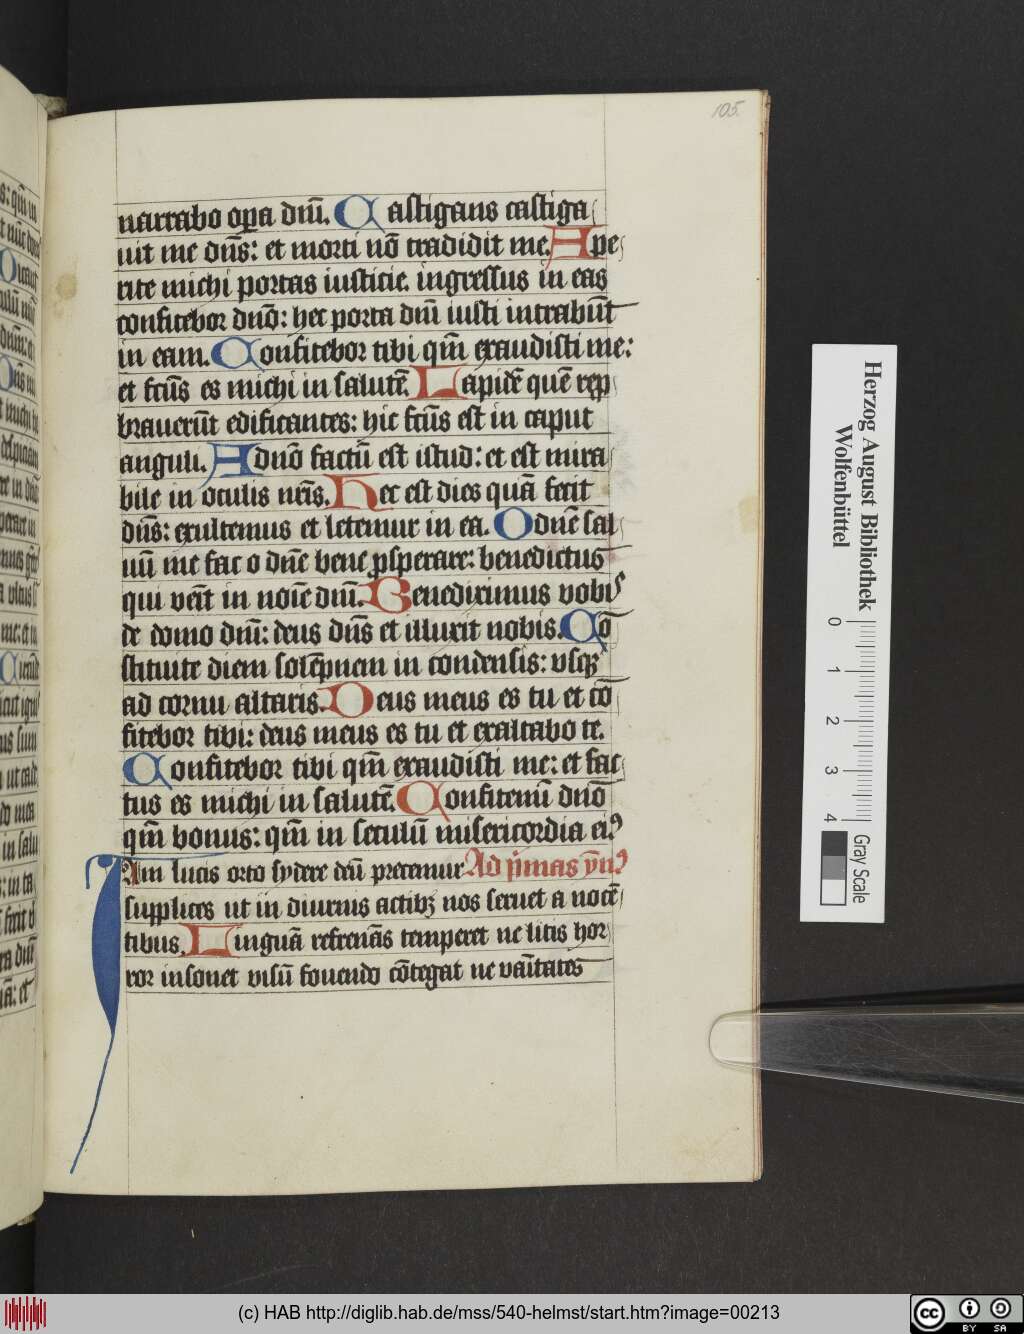 105.
narrabo opa dñi. Castigans castiga
uit me dñs: et morti nõ tradidit me. Ape
rite michi portas iusticie. ingressus in eas
confitebor dnõ: hec porta dñi iusti intrabũt
in eam. Confitebor tibi qm̃ exaudisti me:
et fc̃us es michi in salutẽ. Lapidẽ quẽ rep
brauerũt edificantes: hic fc̃us est in caput
anguli. A dnõ factũ est istud: et est mira
bile in oculis nr̃is. Hec est dies quã fecit
dñs: exultemus et letemur in ea. O dnẽ sal
uũ me fac o dñe bene ꝓsperare: benedictus
qui venĩt in noĩe dñi. Benediximus vobis
de domo dñi: deus dñs et illuxit nobis. Cõ
stitute diem solẽpnem in condensis: vsqꝫ
ad cornu altaris. Deus meus es tu et cõ
fitebor tibi: deus meus es tu et exaltabo te.
Confitebor tibi qm̃ exaudisti me: et fac
tus es michi in salutẽ. Confitemĩ dnõ
qm̃ bonus: qm̃ in seculũ misericordia eiꝰ
Iam lucis orto sydere deũ precemur Ad p̃mas ỹnꝰ
supplices ut in diurnis actibꝫ nos seruet a nocẽ
tibus. Linguã refrenãs temperet ne litis hor
ror insonet visũ fouendo cõtegat ne vanĩtates
Herzog August Bibliothek
Wolfenbüttel
0 1 2 3 4
Gray Scale
(c) HAB http://diglib.hab.de/mss/540-helmst/start.htm?image=00213
cc BY SA